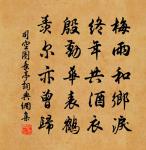 梅雨和鄉淚
終年共酒衣
殷勤華表鶴
羨爾亦曾歸
司空圖長亭詞典網集